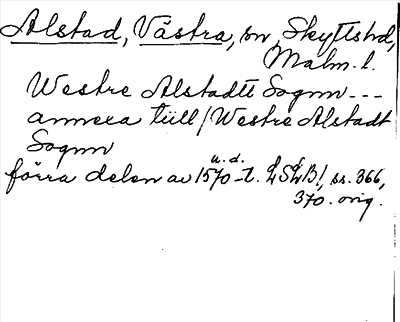 Alstad, Västra, sn, Skyttshd,
Malm. l.
Westre Alstadtt Sognn ---
annexa tiill/Westre Alstadt
Sognn
u. d.
förra delen av 1570-t. LSLB!, ss. 366,
370. orig.